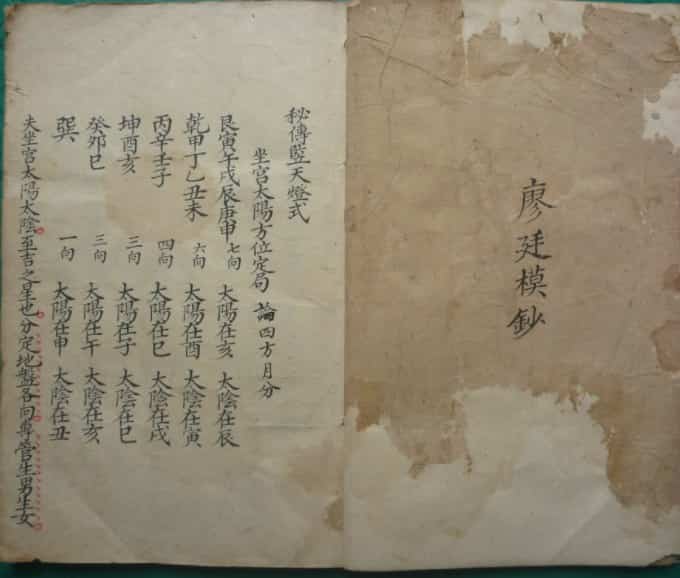 廖廷模鈔
秘傳豎天燈式
坐宮太陽方位定局 論四方月分
艮寅午戌辰庚申 七向 太陽在亥 太陰在辰
乾甲丁乙丑未 六向 太陽在酉 太陰在寅
丙辛壬子 四向 太陽在巳 太陰在戌
坤酉亥 三向 太陽在子 太陰在巳
癸夘巳 三向 太陽在午 太陰在亥
巽 一向 太陽在申 太陰在丑
夫坐宮太陽太陰至吉之星也分定地盤各向專管生男生女